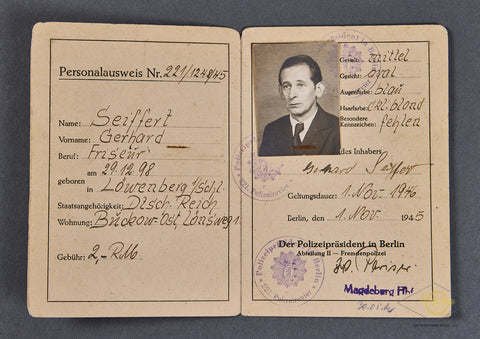 Personalausweis Nr. 221/1248/45
Name: Seiffert
Vorname: Gerhard
Beruf: Friseur
am 29.12.98
geboren
in Löwenberg/Schl.
Staatsangehörigkeit: Dtsch. Reich
Wohnung: Buckow-Ost, Lonsweg 1
Gebühr: 2,- RM
Gestalt: mittel
Gesicht: oval
Augenfarbe: blau
Haarfarbe: dkl.blond
Besondere
Kennzeichen: fehlen
des Inhabers
Gerhard Seiffert
Geltungsdauer: 1. Nov. 1946
Berlin, den 1. Nov. 1945
Der Polizeipräsident in Berlin
Abteilung II – Fremdenpolizei
Polizeipräsident in Berlin
221. Polizeirevier
Magdeburg Hbf